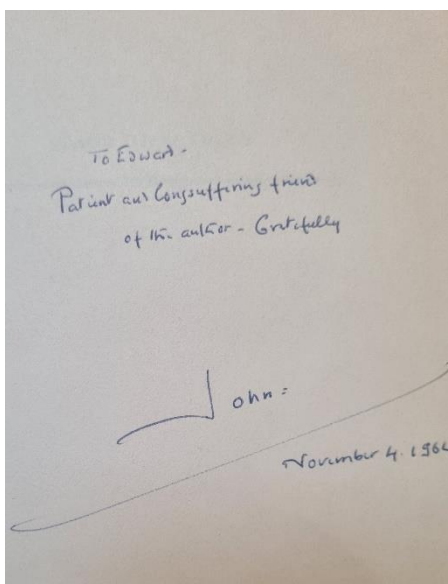 To Edward -
Patient and Longsuffering friend
of the author - Gratefully
John =
November 4. 196